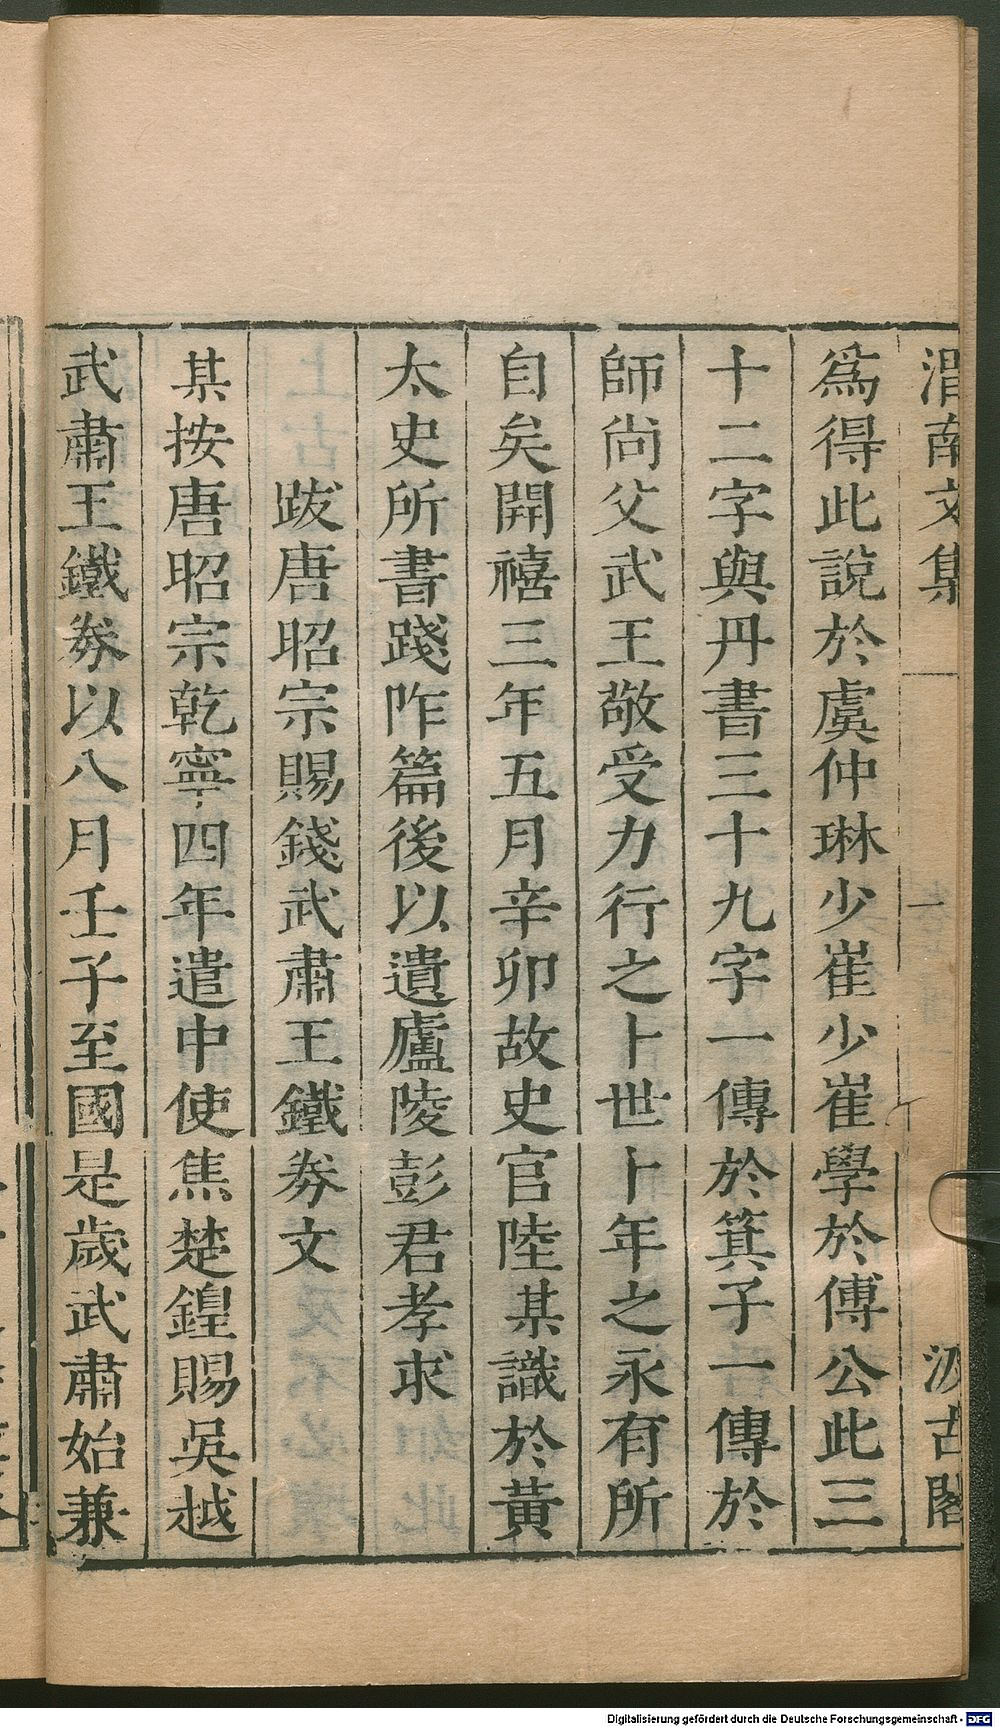 渭南文集
一
汲古閣
爲得此說於虞仲琳少崔少崔學於傅公此三
十二字與丹書三十九字一傳於箕子一傳於
師尚父武王敬受力行之卜世卜年之永有所
自矣開禧三年五月辛卯故史官陸某識於黃
太史所書踐阼篇後以遺廬陵彭君孝求
跋唐昭宗賜錢武肅王鐵券文
某按唐昭宗乾寧四年遣中使焦楚鍠賜吳越
武肅王鐵券以八月壬子至國是歲武肅始兼
Digitalisierung gefördert durch die Deutsche Forschungsgemeinschaft - DFG